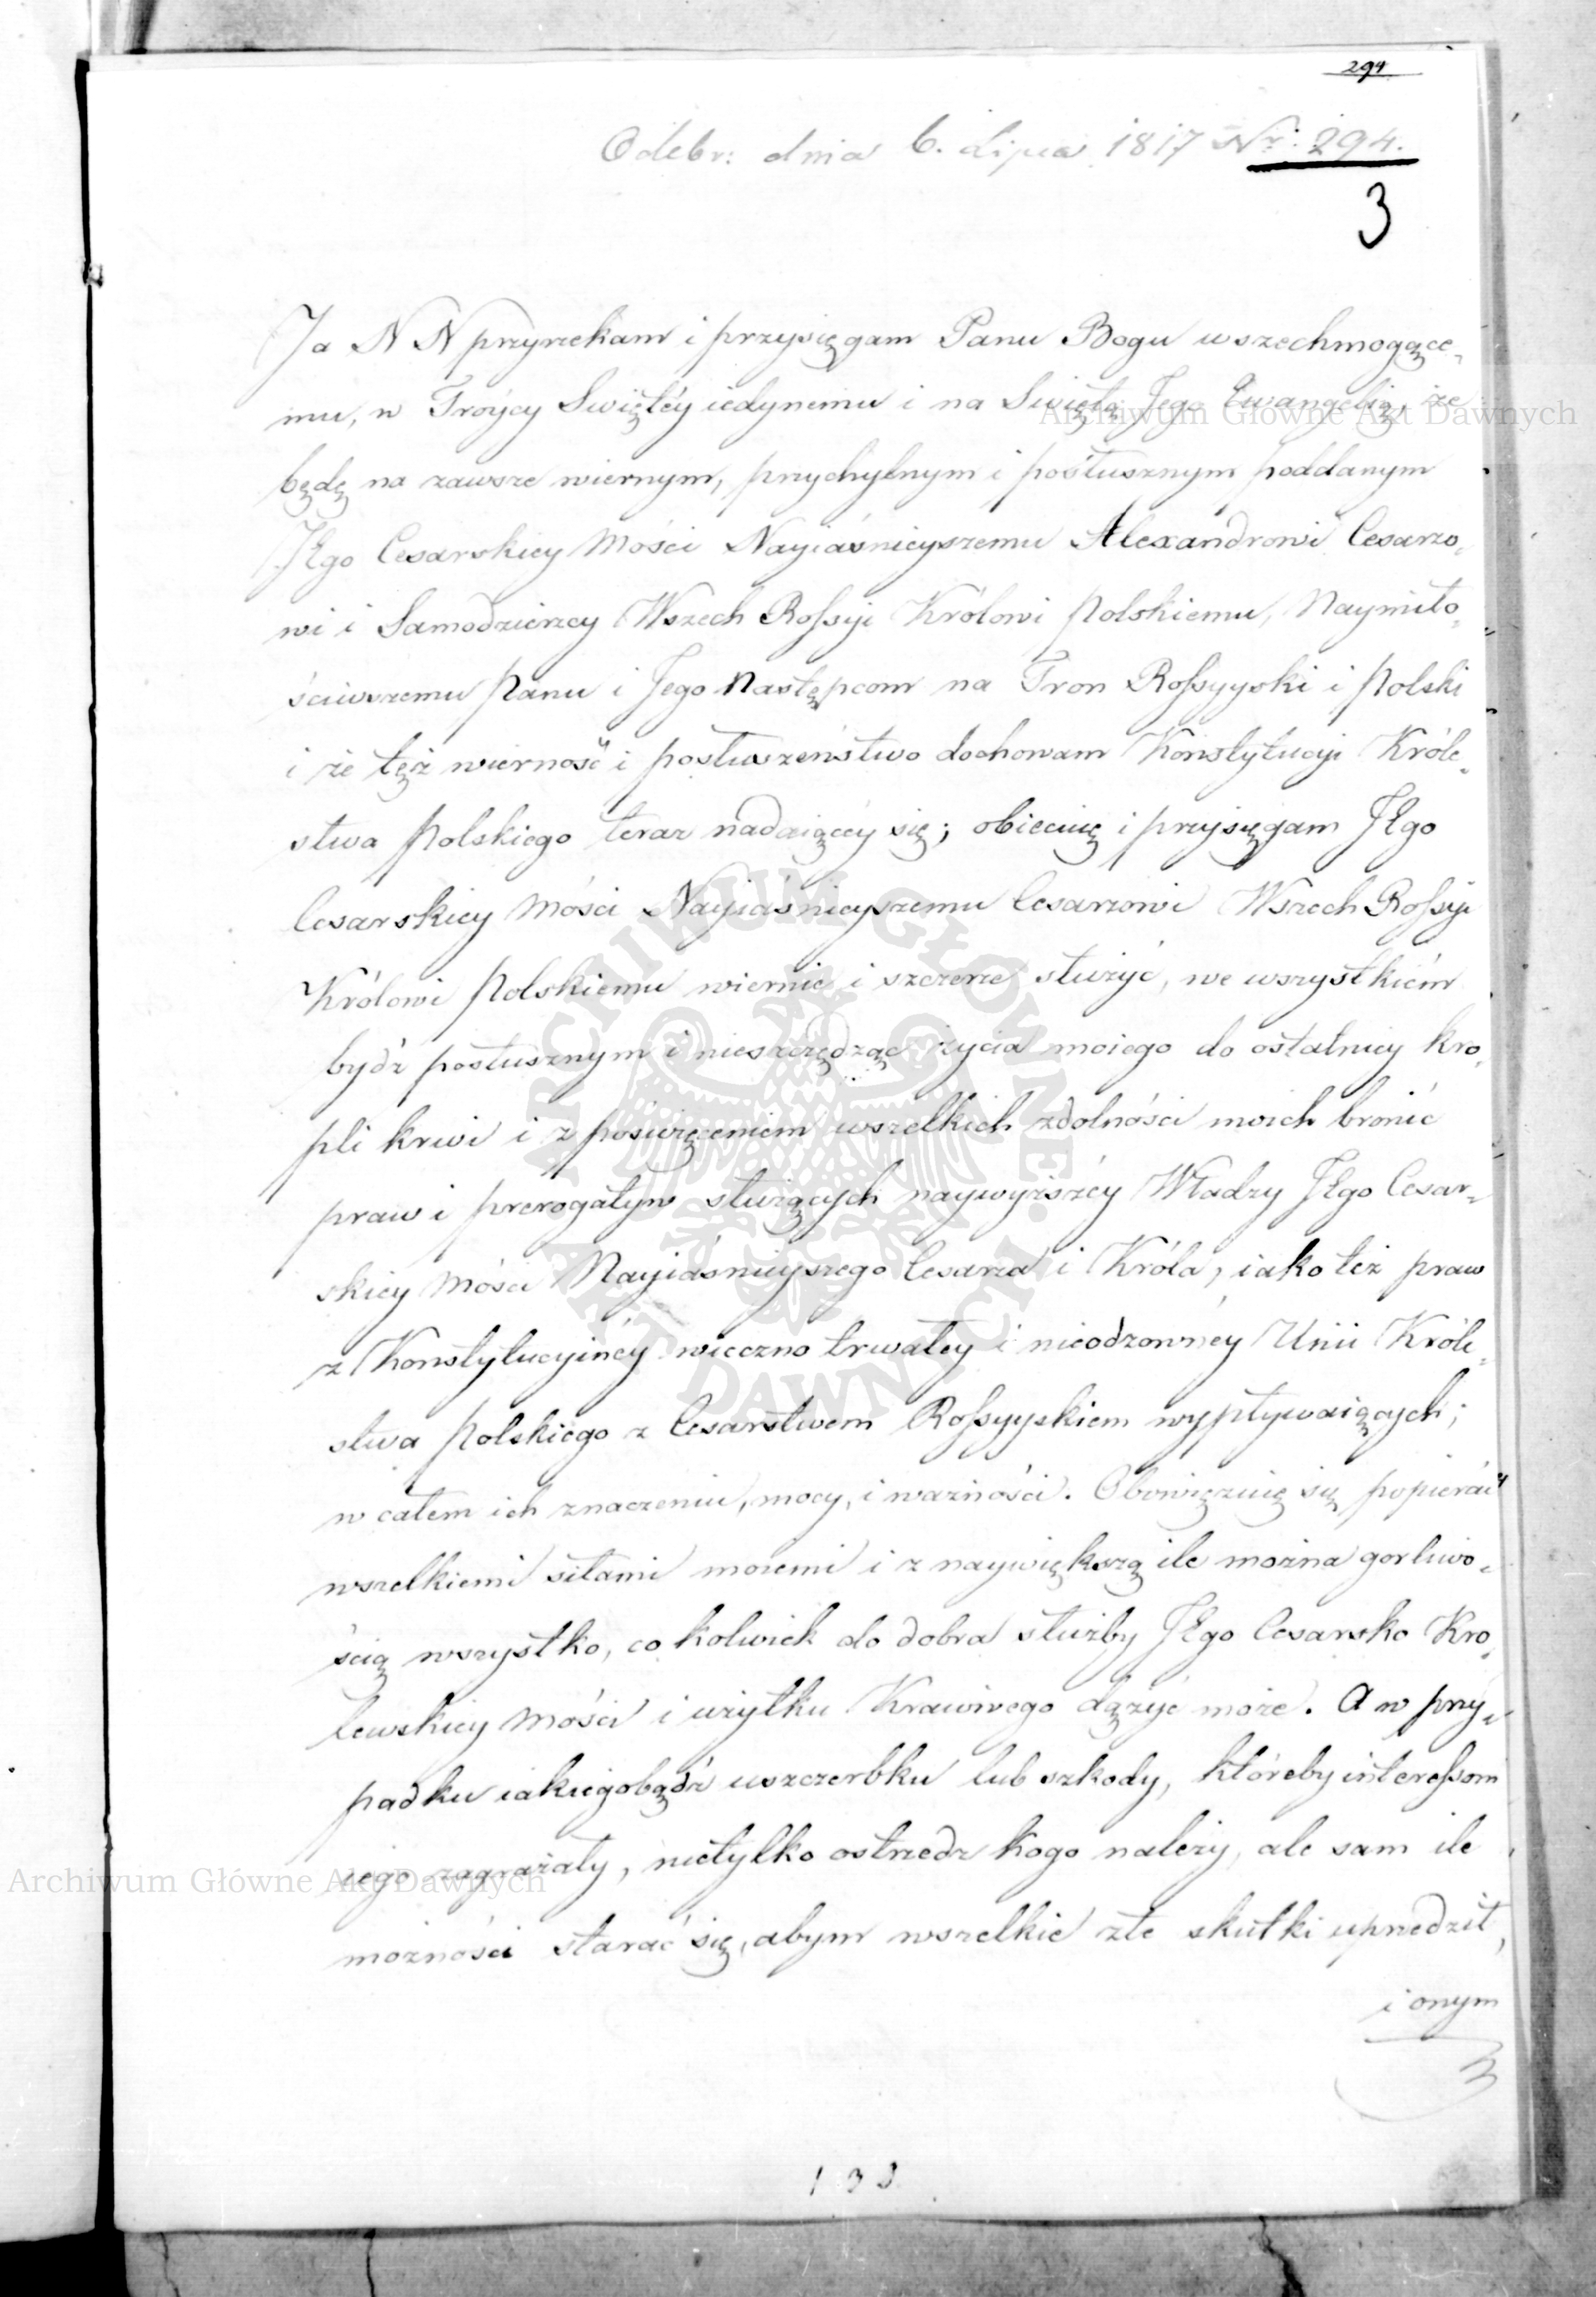 294
Odebr: dnia 6. Lipca 1817 Nr: 294.
3
Ja N N przyrzekam i przysięgam Panu Bogu wszechmogące-
mu, w Tróycy Swiętéy iedynemu i na Swiętą Jego Ewangelią, że
będę na zawsze wiernym, przychylnym i posłusznym poddanym
JEgo Cesarskiey Mości Nayiaśnieyszemu Alexandrowi Cesarzo-
wi i Samodzierzcy Wszech Rossyi Królowi Polskiemu, Naymiło-
ściwszemu Panu i Jego Następcom na Tron Rossyyski i Polski
i że tęż wierność i posłuszeństwo dochowam Konstytucyi Króle-
stwa Polskiego teraz nadaiącéy się; obiecuię i przysięgam JEgo
Cesarskiey Mości Nayiaśnieyszemu Cesarzowi Wszech Rossyi
Królowi Polskiemu wiernie i szczerze służyć, we wszystkiém
bydź posłusznym i nieszczędząc życia moiego do ostatniey kro-
pli krwi i z poświęceniem wszelkich zdolności moich bronić
praw i prerogatyw służących naywyższéy Władzy JEgo Cesar-
skiey Mości Nayiaśnieyszego Cesarza i Króla, iako też praw
z Konstytucyinéy wieczno trwałey i nieodzownéy Unii Króle-
stwa Polskiego z Cesarstwem Rossyyskiem wypływaiących;
w całem ich znaczeniu, mocy, i ważności. Obowięzuię się popierać
wszelkiemi siłami moiemi i z naywiększą ile można gorliwo-
ścią wszystko, co kolwiek do dobra służby JEgo Cesarsko Kro-
lewskiey Mości i użytku Kraiowego dążyć może. A w przy-
padku iakiegobądź uszczerbku lub szkody, któreby interessom
iego zagrażały, nietylko ostrzedz kogo należy, ale sam ile
możności starać się, abym wszelkie złe skutki uprzedził,
i onym
3
133
Archiwum Główne Akt Dawnych
ARCHIWUM GŁÓWNE AKT DAWNYCH
Archiwum Główne Akt Dawnych